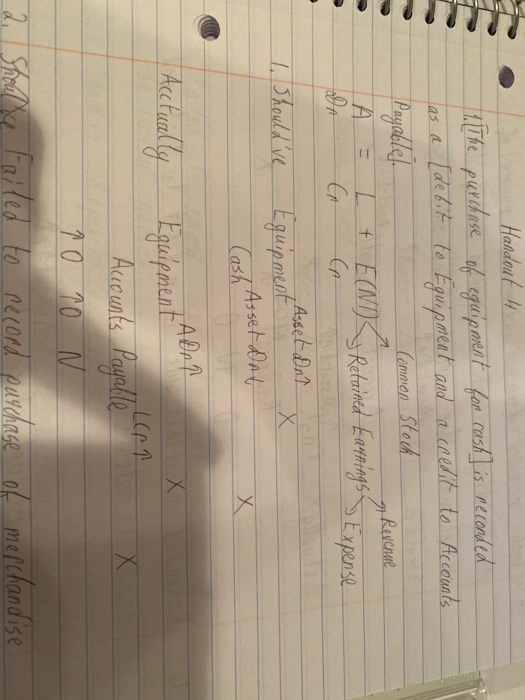 Handout 4
1. [The purchase of equipment for cash] is recorded
as a [debit to Equipment and a credit to Accounts
Payable].
Common Stock
Revenue
A = L + E(NI) Retained Earnings Expense
Dr Cr Cr
1. Should've Equipment Asset Dr↑ X
Cash Asset X
Actually Equipment A Dr↑ X
Accounts Payable L Cr↑ X
↑O ↑O N
2. Failed to record purchase of merchandise